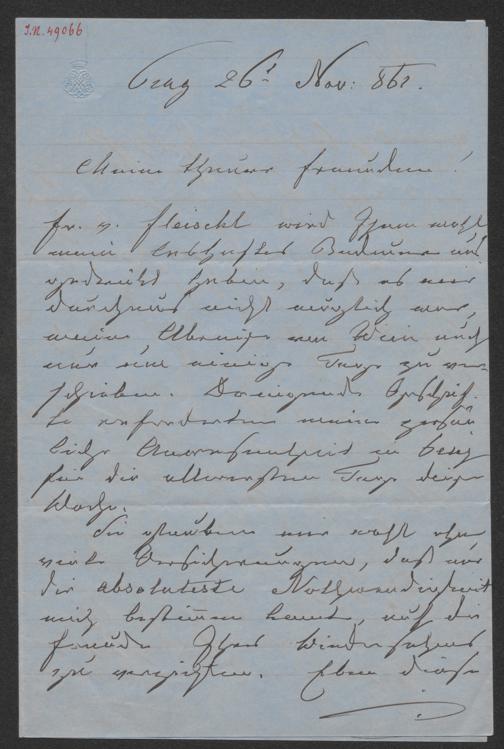 I.N. 49066
Prag 26t Nov: 861.
Meine theure Freundin!
Fr. v. Fleischl wird Ihnen wohl
mein lebhaftes Bedauern aus
gedrückt haben, daß es mir
durchaus nicht möglich war,
meine Abreise von Wien auch
nur um einige Tage zu ver
schieben. Dringende Geschäf-
te erforderten meine persön
liche Anwesenheit in
für die allerersten Tage dieser
Woche.
Sie glauben mir wohl ohne
viele Versicherungen, daß nur
die absoluteste Nothwendigkeit
mich bestimmen konnte, auf die
Freude Ihres Wiedersehens
zu verzichten. Eben diese